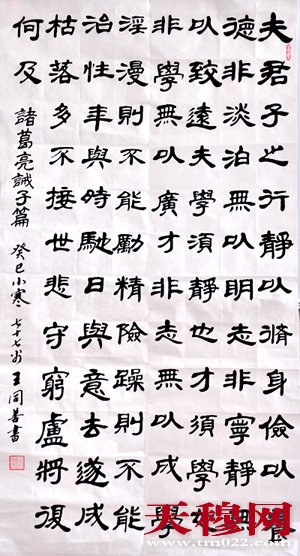 夫君子之行靜以修身儉以養
德非淡泊無以明志非寧靜無
以致遠夫學須靜也才須學也
非學無以廣才非志無以成學
淫漫則不能勵精險躁則不能
治性年與時馳日與意去遂成
枯落多不接世悲守窮廬將復
何及 諸葛亮誡子篇 癸巳小寒 七十七翁 王同善書
天穆网
www.tm022.com